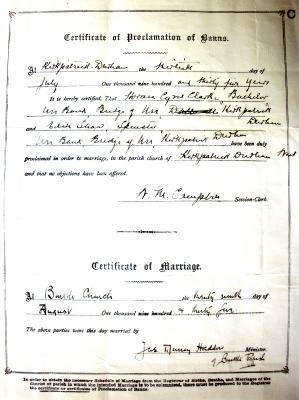 Certificate of Proclamation of Banns.
At Kirkpatrick Durham the day of
July One thousand nine hundred and thirty five Years
It is hereby certified, That Horace Cyril Clark, Bachelor
Urr Bank Bridge of Urr, Kirkpatrick
Durham
and Edith Shaw, Spinster
Urr Bank Bridge of Urr Kirkpatrick Durham have been duly
proclaimed in order to marriage, in the parish church of Kirkpatrick Durham
and no objections have been offered.
A. M. Campbell
Session-Clerk.
Certificate of Marriage.
At Buittle Church the twenty ninth day of
August One thousand nine hundred & thirty five
The above parties were this day married by
Minister
of Buittle Parish
In order to obtain the necessary Schedule of Marriage from the Registrar of Births, Deaths, and Marriages of the
district or parish in which the intended Marriage is to be solemnised, there must be produced to the Registrar
the certificate or certificates of Proclamation of Banns.